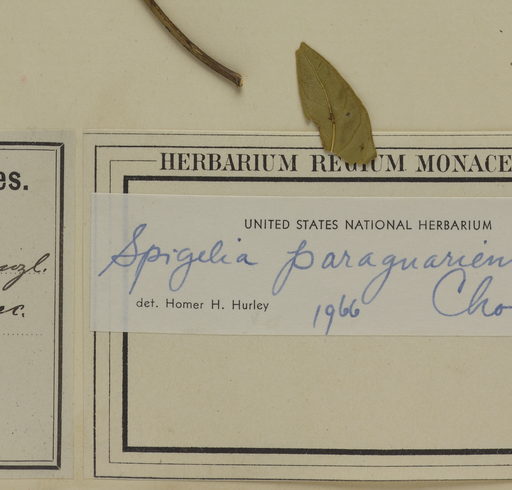 es.
HERBARIUM REGIUM MONACE
UNITED STATES NATIONAL HERBARIUM
Spigelia paraguarien
Cho
det. Homer H. Hurley
1966